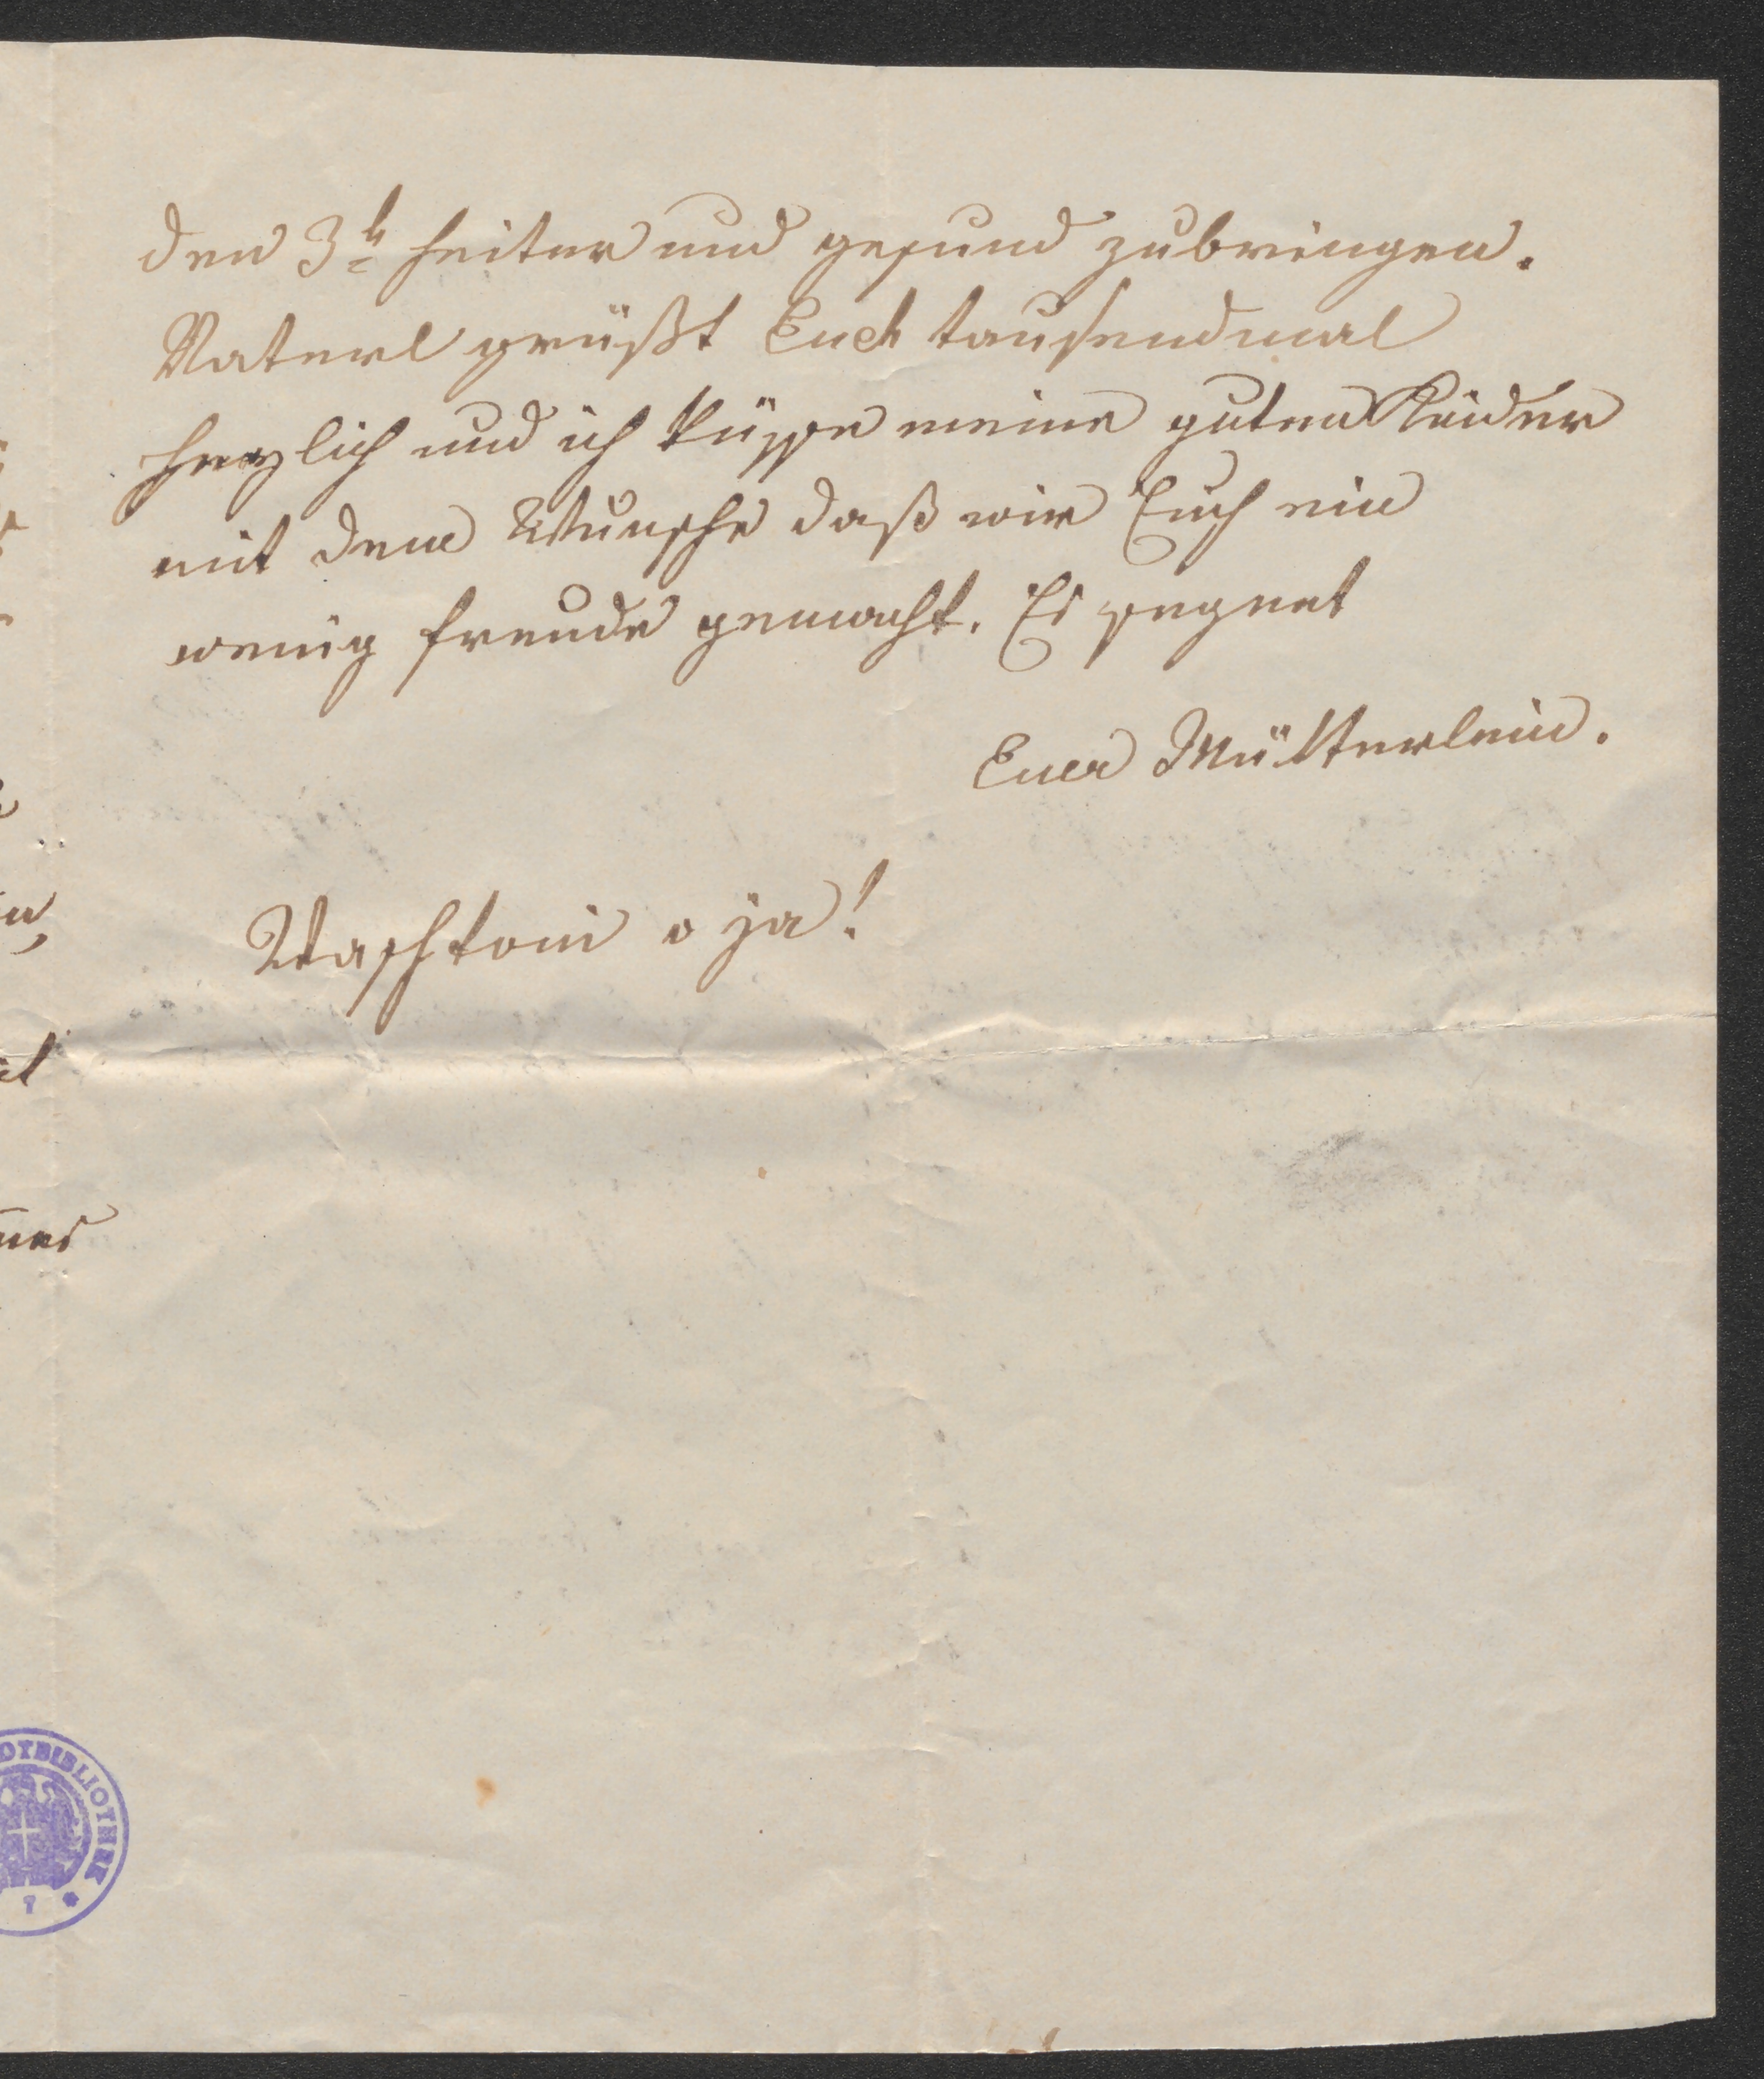 den 3t heiter und gesund zubringen.
Vaterl grüßt Euch tausendmal
herzlich und ich küsse meine guten Kinder
mit dem Wunsche daß wir Euch ein
wenig Freude gemacht. Es segnet
Euer Mütterlein.
Waschtoni o ja!
DTBIBLIOTHEK